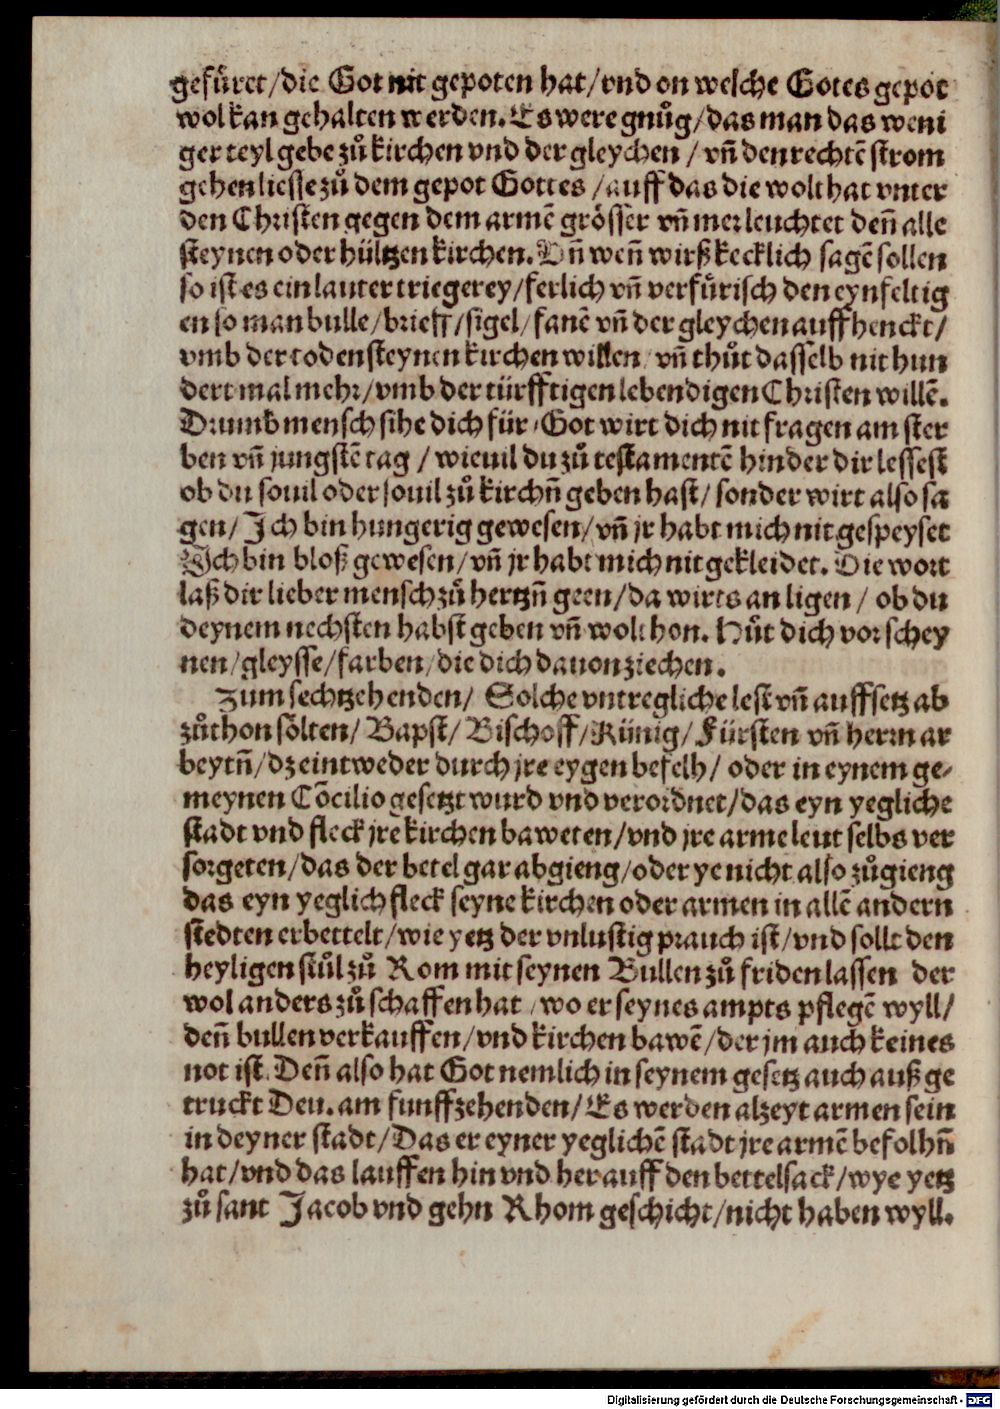 gefüret/die Got nit gepoten hat/vnd on welche Gotes gepot
wol kan gehalten werden. Es were gnůg/das man das weni
ger teyl gebe zů kirchen vnd der gleychen / vñ den rechtē strom
gehen liesse zů dem gepot Gottes /auff das die wolthat vnter
den Christen gegen dem armē grösser vñ mer leuchtet deñ alle
steynen oder hültzen kirchen. Vñ weñ wirß kecklich sagē sollen
so ist es ein lauter triegerey/ferlich vñ verfürisch den eynfeltig
en so man bulle/brieff/sigel/fanē vñ der gleychen auffhenckt/
vmb der toden steynen kirchen willen/ vñ thůt dasselb nit hun
dert mal mehr/vmb der türfftigen lebendigen Christen willē.
Drumb mensch sihe dich für/Got wirt dich nit fragen am ster
ben vñ jungstē tag / wieuil du zů testamentē hinder dir lessest
ob du souil oder souil zů kirchñ geben hast/ sonder wirt also sa
gen/ Ich bin hungerig gewesen/vñ jr habt mich nit gespeyset
Ich bin bloß gewesen/vñ jr habt mich nit gekleidet. Die wort
laß dir lieber mensch zů hertzñ geen/da wirts an ligen / ob du
deynem nechsten habst geben vñ wolthon. Hüt dich vor schey
nen/gleysse/farben/die dich dauon ziechen.
Zum sechtzehenden/ Solche vntregliche lest vñ auffsetz ab
zůthon sölten/ Bapst/ Bischoff/Künig/ Fürsten vñ herrn ar
beytñ/dz eintweder durch jre eygen befelh/ oder in eynem ge-
meynen Cōcilio gesetzt wurd vnd verordnet/das eyn yegliche
stadt vnd fleck jre kirchen baweten/vnd jre arme leut selbs ver
sorgeten/das der betel gar abgieng/oder ye nicht also zůgieng
das eyn yeglich fleck seyne kirchen oder armen in allē andern
stedten erbettelt/wie yetz der vnlustig prauch ist/vnd sollt den
heyligen stůl zů Rom mit seynen Bullen zů friden lassen der
wol anders zů schaffen hat /wo er seynes ampts pflegē wyll/
deñ bullen verkauffen/vnd kirchen bawē/der jm auch keines
not ist. Deñ also hat Got nemlich in seynem gesetz auch auß ge
truckt Deu. am funffzehenden/ Es werden alzeyt armen sein
in deyner stadt/Das er eyner yeglichē stadt jre armē befolhñ
hat/vnd das lauffen hin vnd her auff den bettelsack/wye yetz
zů sant Jacob vnd gehn Rhom geschicht/nicht haben wyll.
Digitalisierung gefördert durch die Deutsche Forschungsgemeinschaft - DFG